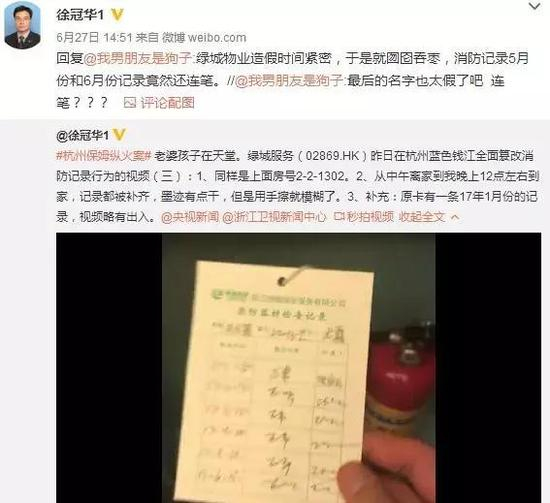 徐冠华1
6月27日 14:51 来自 微博 weibo.com
回复@我男朋友是狗子:绿城物业造假时间紧密，于是就囫囵吞枣，消防记录5月
份和6月份记录竟然还连笔。//@我男朋友是狗子:最后的名字也太假了吧 连
笔？？？ 评论配图
@徐冠华1
#杭州保姆纵火案# 老婆孩子在天堂。绿城服务（02869.HK）昨日在杭州蓝色钱江全面篡改消
防记录行为的视频（三）：1、同样是上面房号2-2-1302。2、从中午离家到我晚上12点左右到
家，记录都被补齐，墨迹有点干，但是用手擦就模糊了。3、补充：原卡有一条17年1月份的记
录，视频略有出入。@央视新闻 @浙江卫视新闻中心 秒拍视频 收起全文
消防器材检查记录